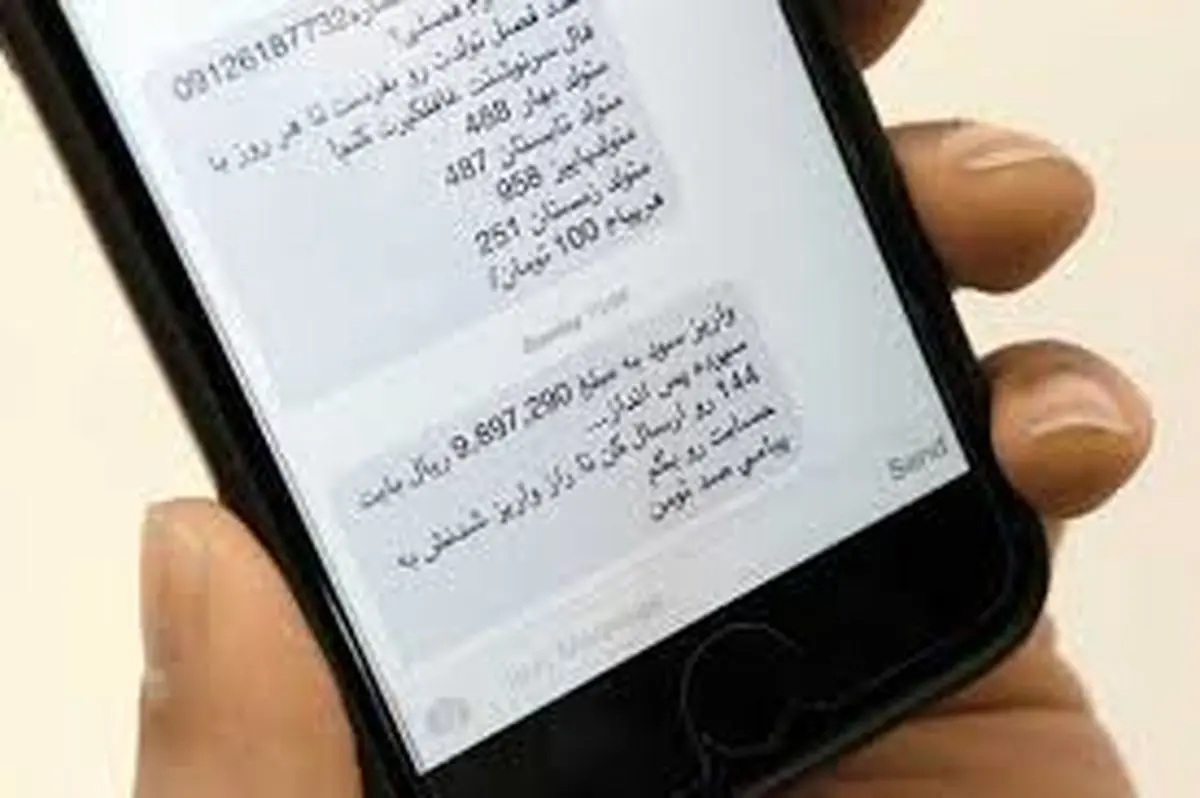 09126187732
فصلی؟
فصل تولدت رو بفرست تا هر روز با
فال سرنوشت غافلگیرت کنم!
متولد بهار 488
متولد تابستان 487
متولدپاییز 958
متولد زمستان 251
هرپیام 100 تومان!
واریز سود به مبلغ 9,897,290 ریال بابت
سپرده پس انداز...
144 رو ارسال کن تا راز واریز شدنش به
حسابت رو بگم
پیامی صد تومن
Send